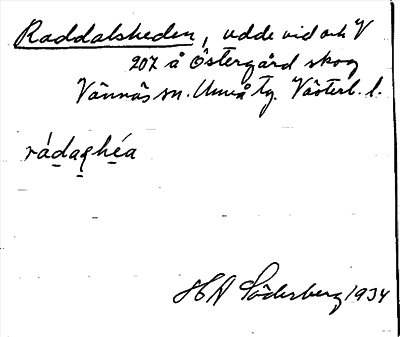 Raddalsheden, udde vid och V
207 å Östergård skog
Vännäs sn. Umeå tg. Västerb. l.
rádaςhéa
HA Söderberg 1934